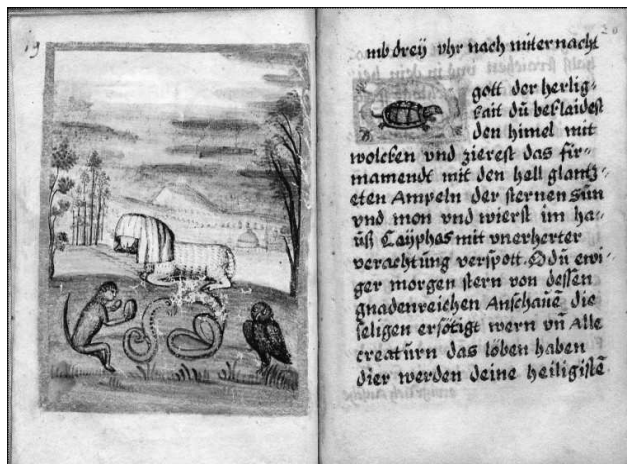 19
mb drey vhr nach miternacht
gott der herlig-
kait dū beklaidest
den himel mit
wolcken vnd zierest das fir-
mamendt mit den hell glantz-
eten Ampeln der sternen sūn
vnd mon vnd wierst im ha-
ūß Caÿphas mit vnerherter
verachtūng verspott. O dū ewi-
ger morgen stern von dessen
gnadenreichen Anschauē die
seligen ersötigt wern vn̄ Alle
creatūrn das löben haben
dier werden deine heiligistē